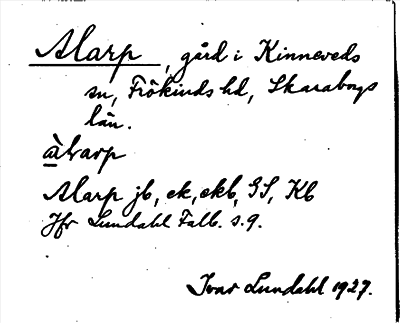 Alarp, gård i Kinneveds
sn, Frökinds hd, Skaraborgs
län.
àlarp
Alarp jb, ek, ekb, GS, Kb
Jfr Lundahl Falb. s. 9.
Ivar Lundahl 1927.